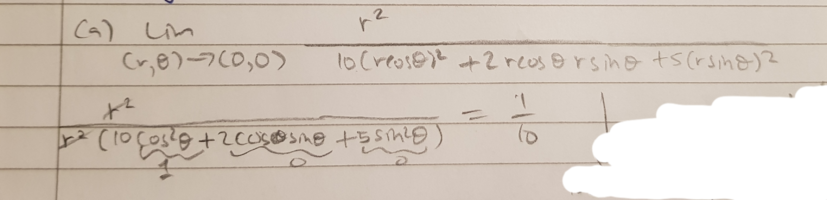 (a) Lim r²
(r,θ)→(0,0) 10(rcosθ)² + 2 rcosθ rsinθ + 5(rsinθ)²
r²
r² (10 cos²θ + 2 cosθ sinθ + 5 sin²θ) = 1/10
1 0 0